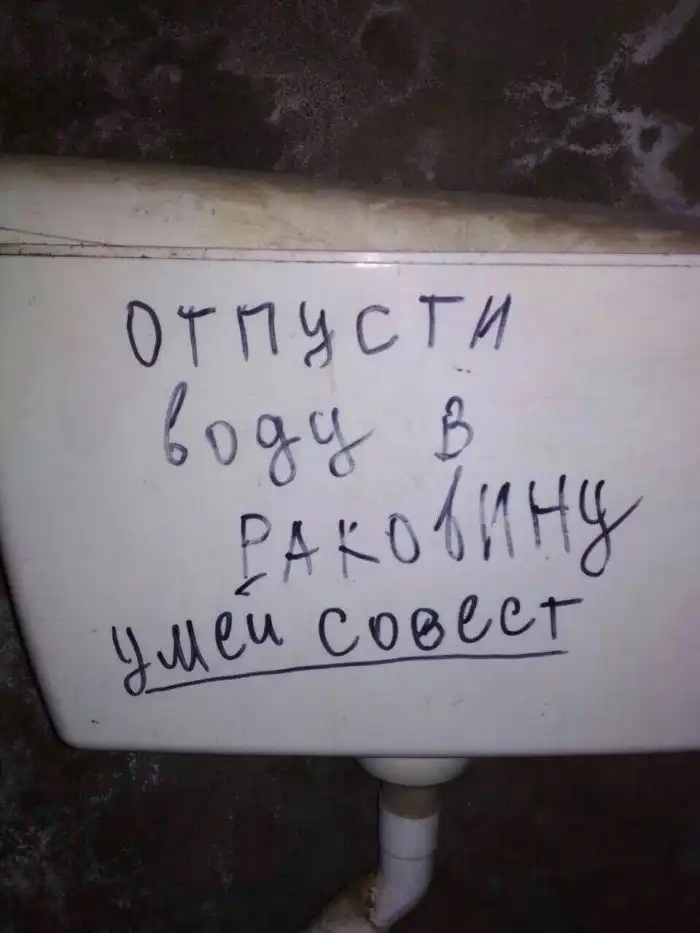 ОТПУСТИ
воду в
РАКОВИНУ
умей совест